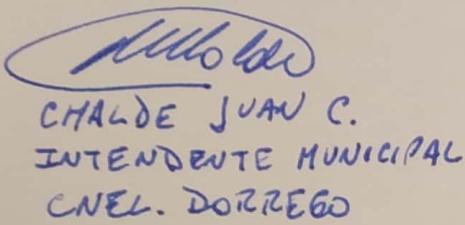 CHALDE JUAN C.
INTENDENTE MUNICIPAL
CNEL. DORREGO